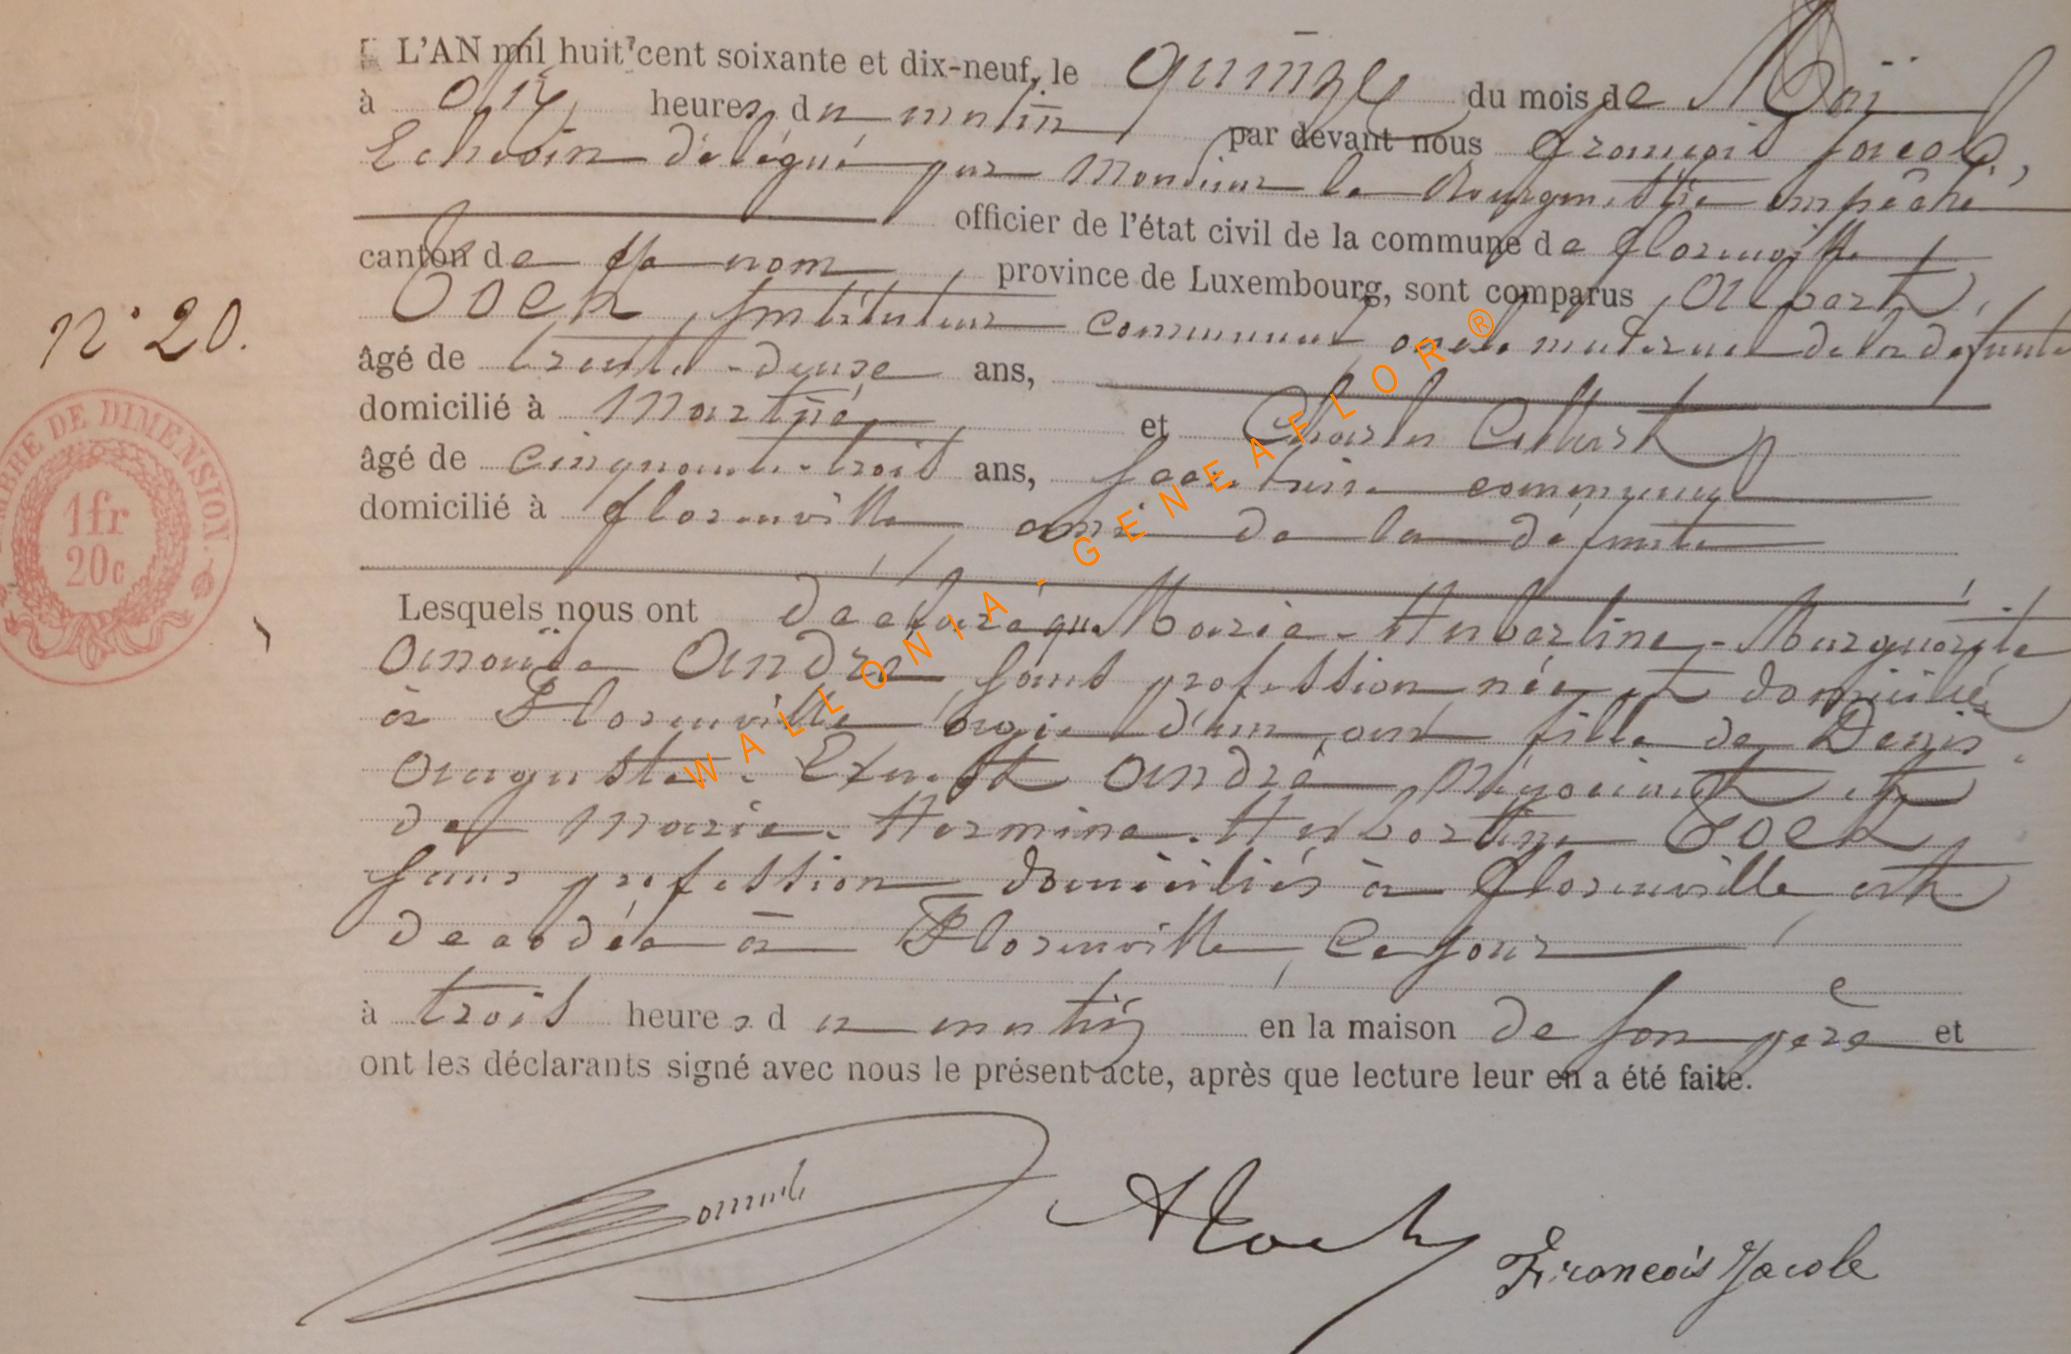 L'AN mil huit cent soixante et dix-neuf, le quinze du mois de Maï
à dix heures du matin par devant nous François Jacob,
Echevin délégué par Monsieur le Bourgmestre empêché
officier de l'état civil de la commune de florenville
canton de même nom, province de Luxembourg, sont comparus Albert
Tock, Instituteur communal oncle maternel de la défunte
N° 20.
âgé de trente-deux ans,
domicilié à Martué et Charles
âgé de cinquante-trois ans, Secrétaire communal
domicilié à florenville ami de la défunte
TIMBRE DE DIMENSION.
1fr
20c
Lesquels nous ont déclaré que Marie-Hubertine-Marguerite
André sans profession née et domiciliée
à Florenville âgée d'un an fille de Denis
Auguste-Ernest André Négociant et
de Marie-Hermine-Hubertine Tock
sans profession domiciliés à florenville est
décédée à Florenville, ce jour
à trois heures du matin en la maison de son père et
ont les déclarants signé avec nous le présent acte, après que lecture leur en a été faite.
ATock
François Jacob
WALLONIA-GENEAFLOR®